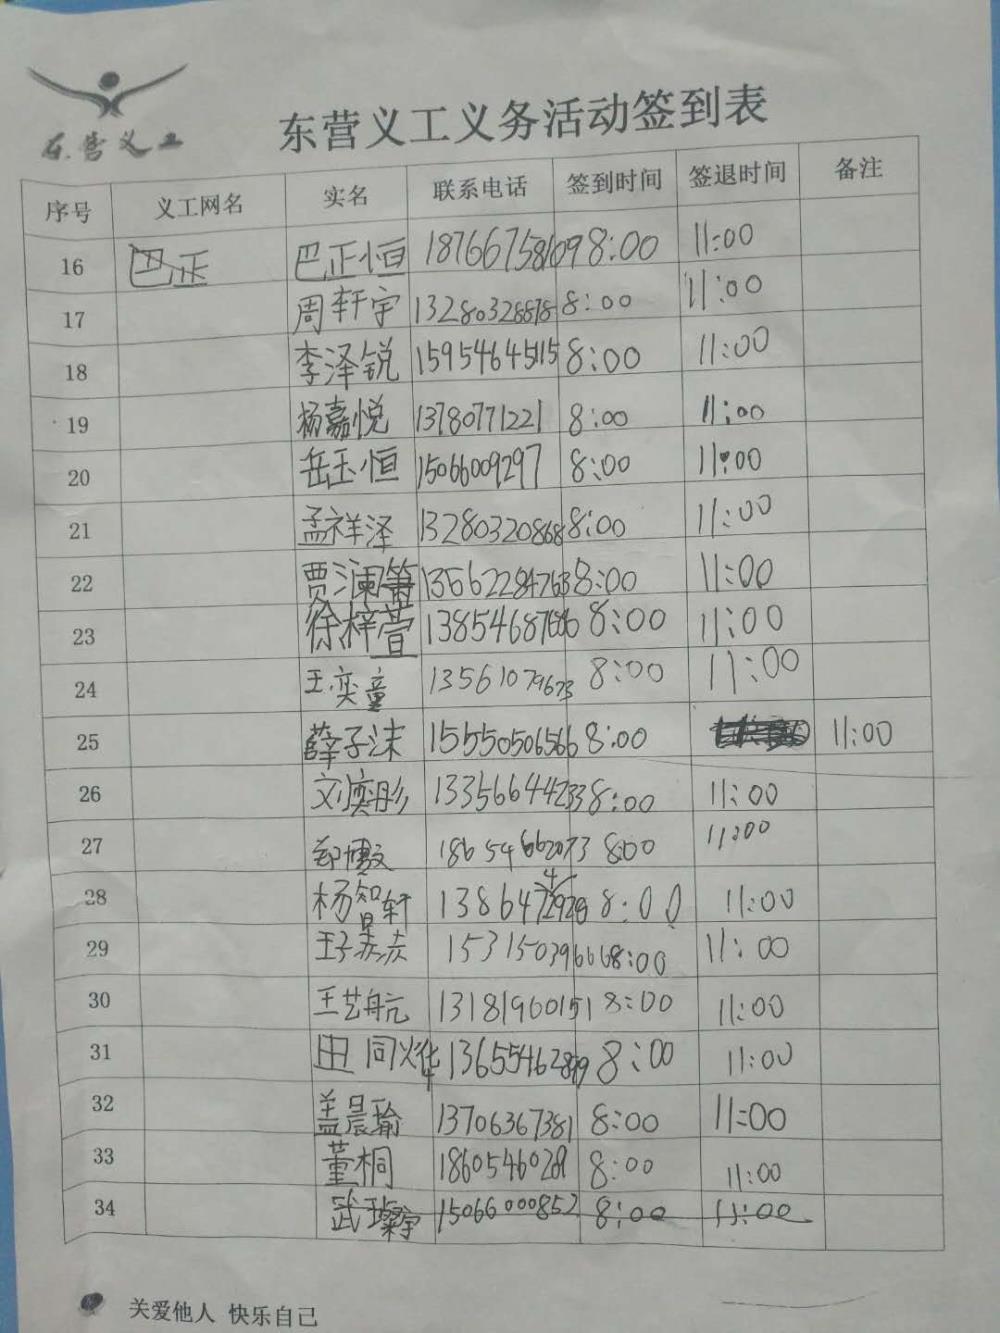 东营义工
东营义工义务活动签到表
序号 义工网名 实名 联系电话 签到时间 签退时间 备注
16 巴正 巴正恒 18766758109 8:00 11:00
17 周轩宇 8:00 11:00
18 李泽锐 15954645115 8:00 11:00
19 杨嘉悦 13780771221 8:00 11:00
20 岳玉恒 15066009297 8:00 11:00
21 孟祥泽 13280320868 8:00 11:00
22 贾澜箐 13562284763 8:00 11:00
23 徐梓萱 8:00 11:00
24 王奕童 13561079673 8:00 11:00
25 薛子沫 15550506566 8:00 11:00
26 刘奕彤 13356644233 8:00 11:00
27 18654662073 8:00 11:00
28 杨智轩 8:00 11:00
29 15315039666 8:00 11:00
30 王艺航 13181960151 8:00 11:00
31 田同烨 8:00 11:00
32 盖晨瑜 13706367381 8:00 11:00
33 董桐 8:00 11:00
34 武璨宇 15066000852 8:00 11:00
关爱他人 快乐自己